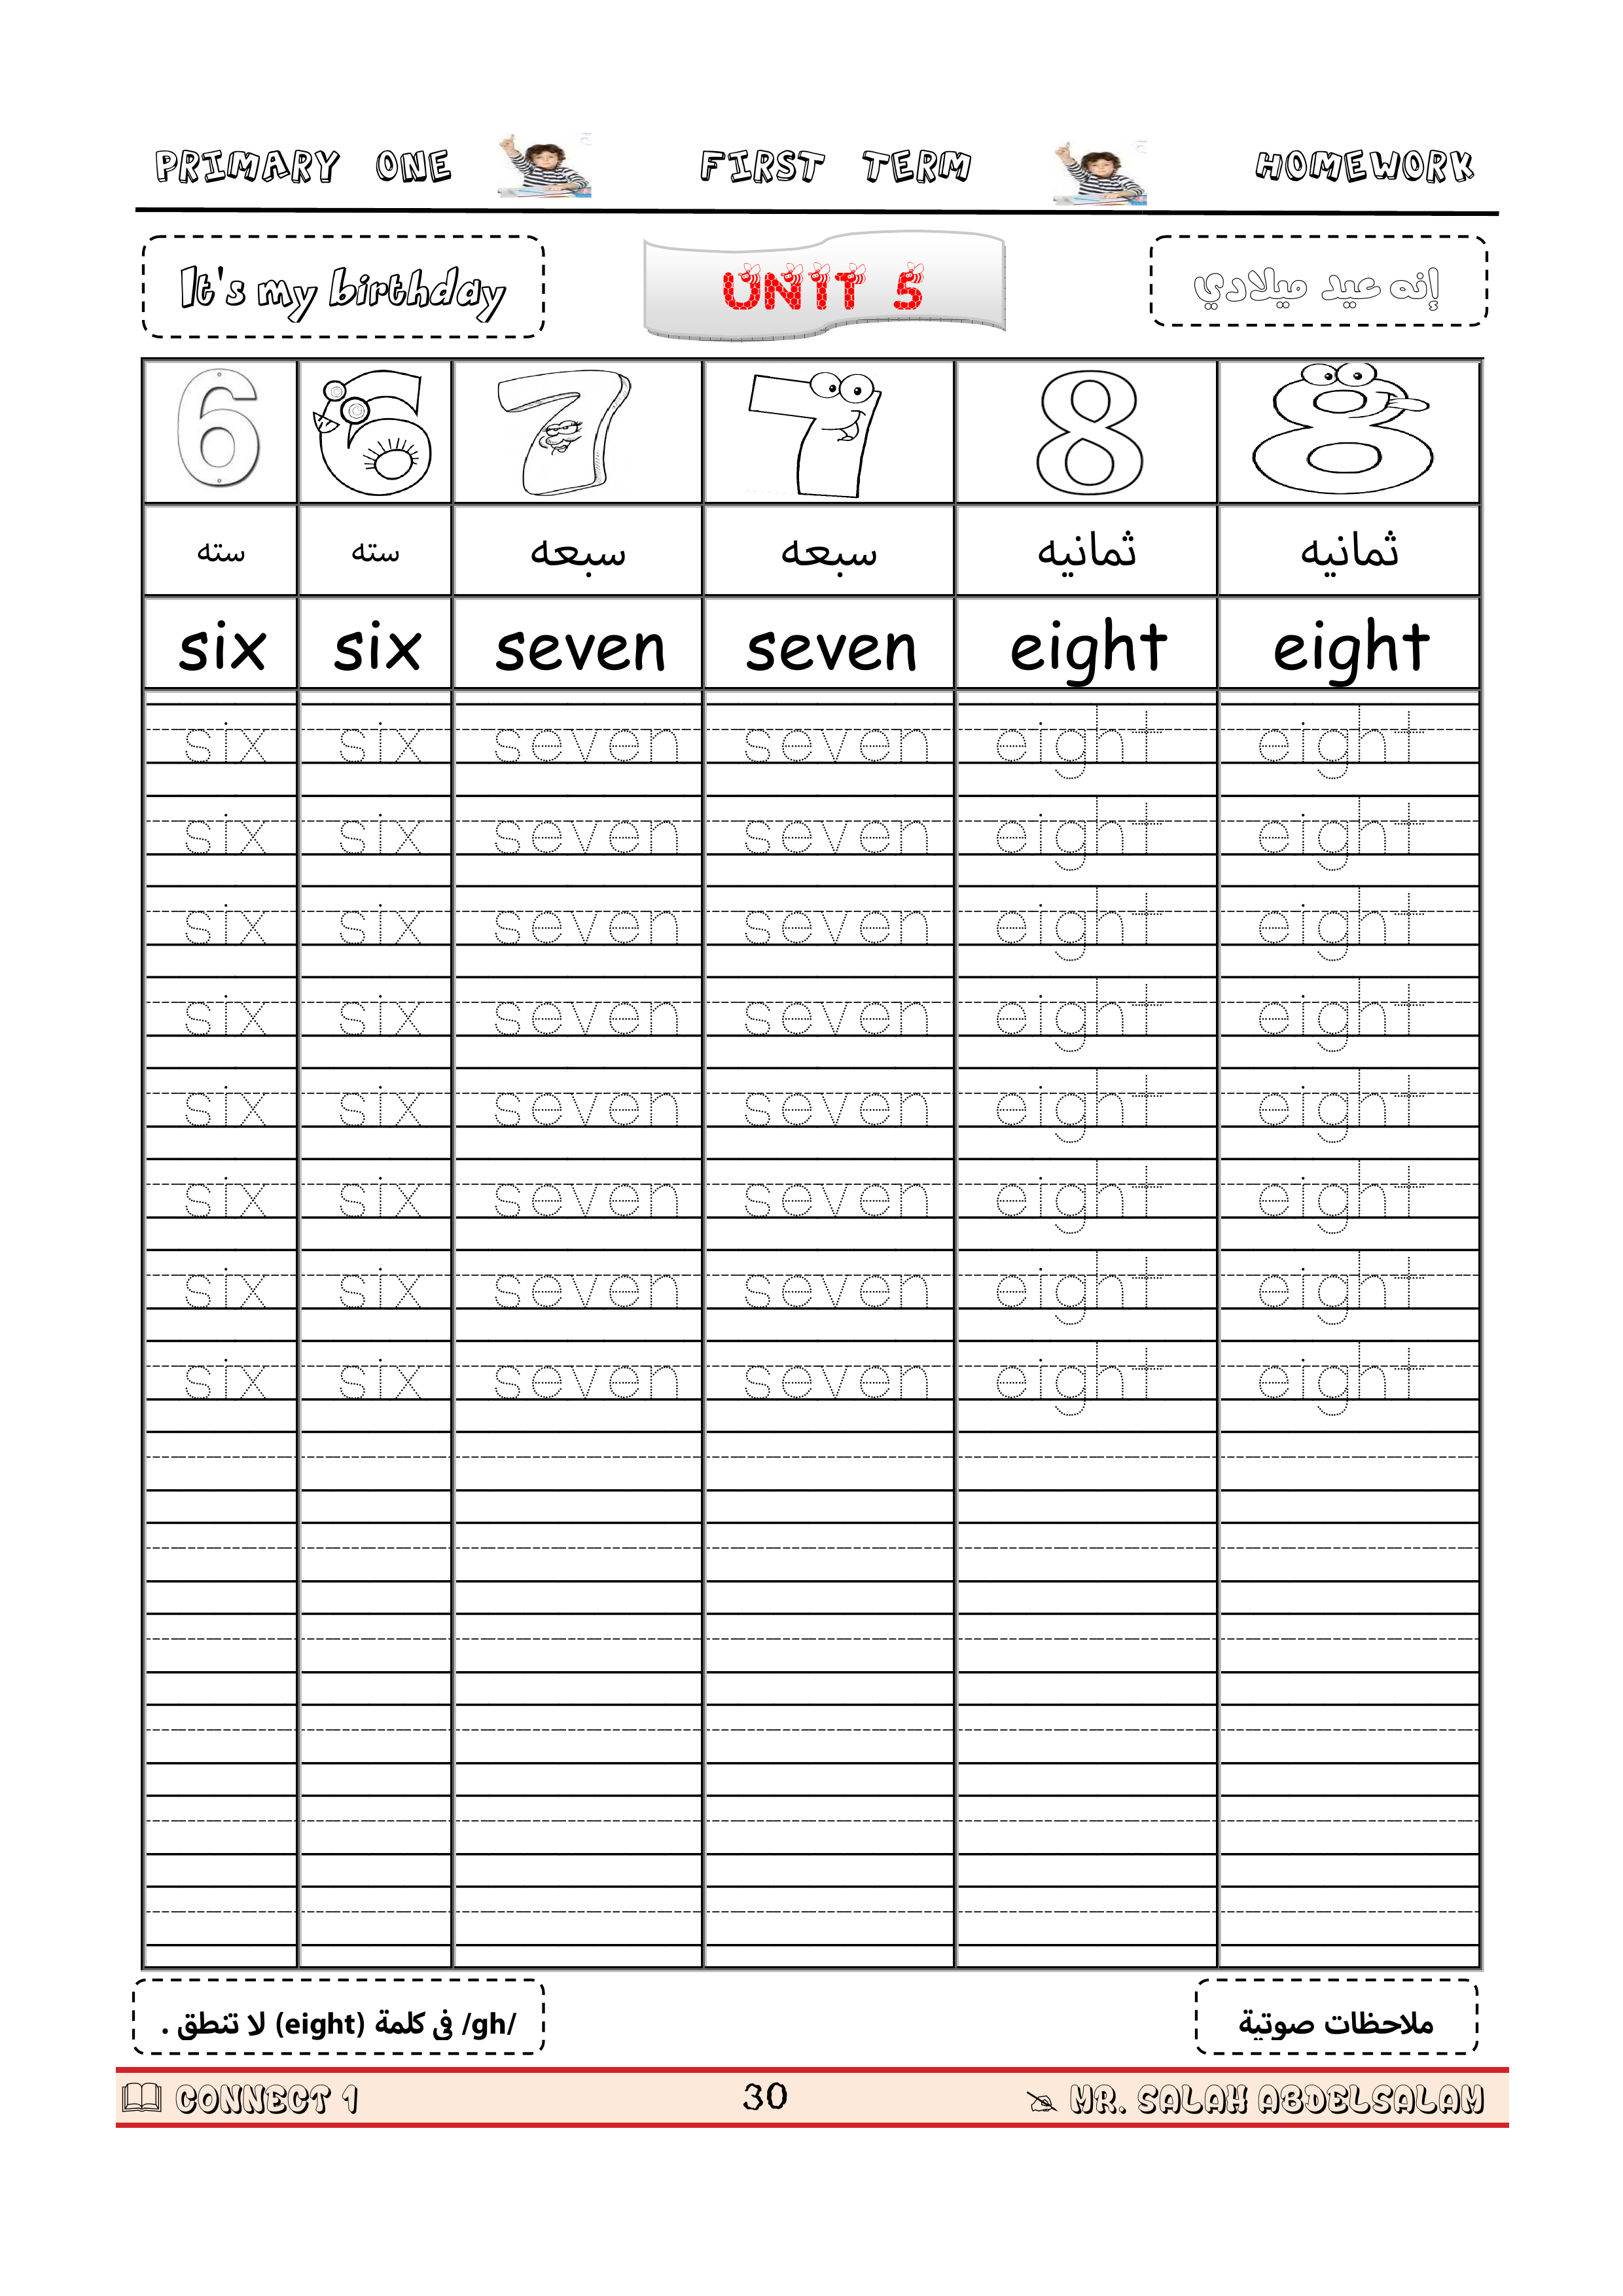 PRIMARY ONE FIRST TERM HOMEWORK
It's my birthday UNIT 5 إنه عيد ميلادي
6 6 7 7 8 8
سته سته سبعه سبعه ثمانيه ثمانيه
six six seven seven eight eight
six six seven seven eight eight
six six seven seven eight eight
six six seven seven eight eight
six six seven seven eight eight
six six seven seven eight eight
six six seven seven eight eight
six six seven seven eight eight
six six seven seven eight eight
ملاحظات صوتية
/gh/ فى كلمة (eight) لا تنطق .
CONNECT 1 30 MR. SALAH ABDELSALAM